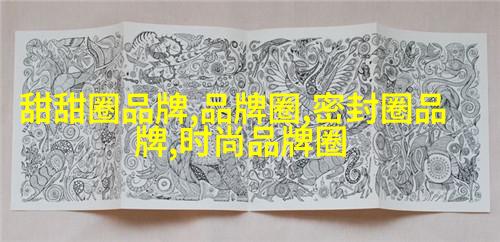 甜甜圈品牌,品牌圈,密封圈品
牌,时尚品牌圈